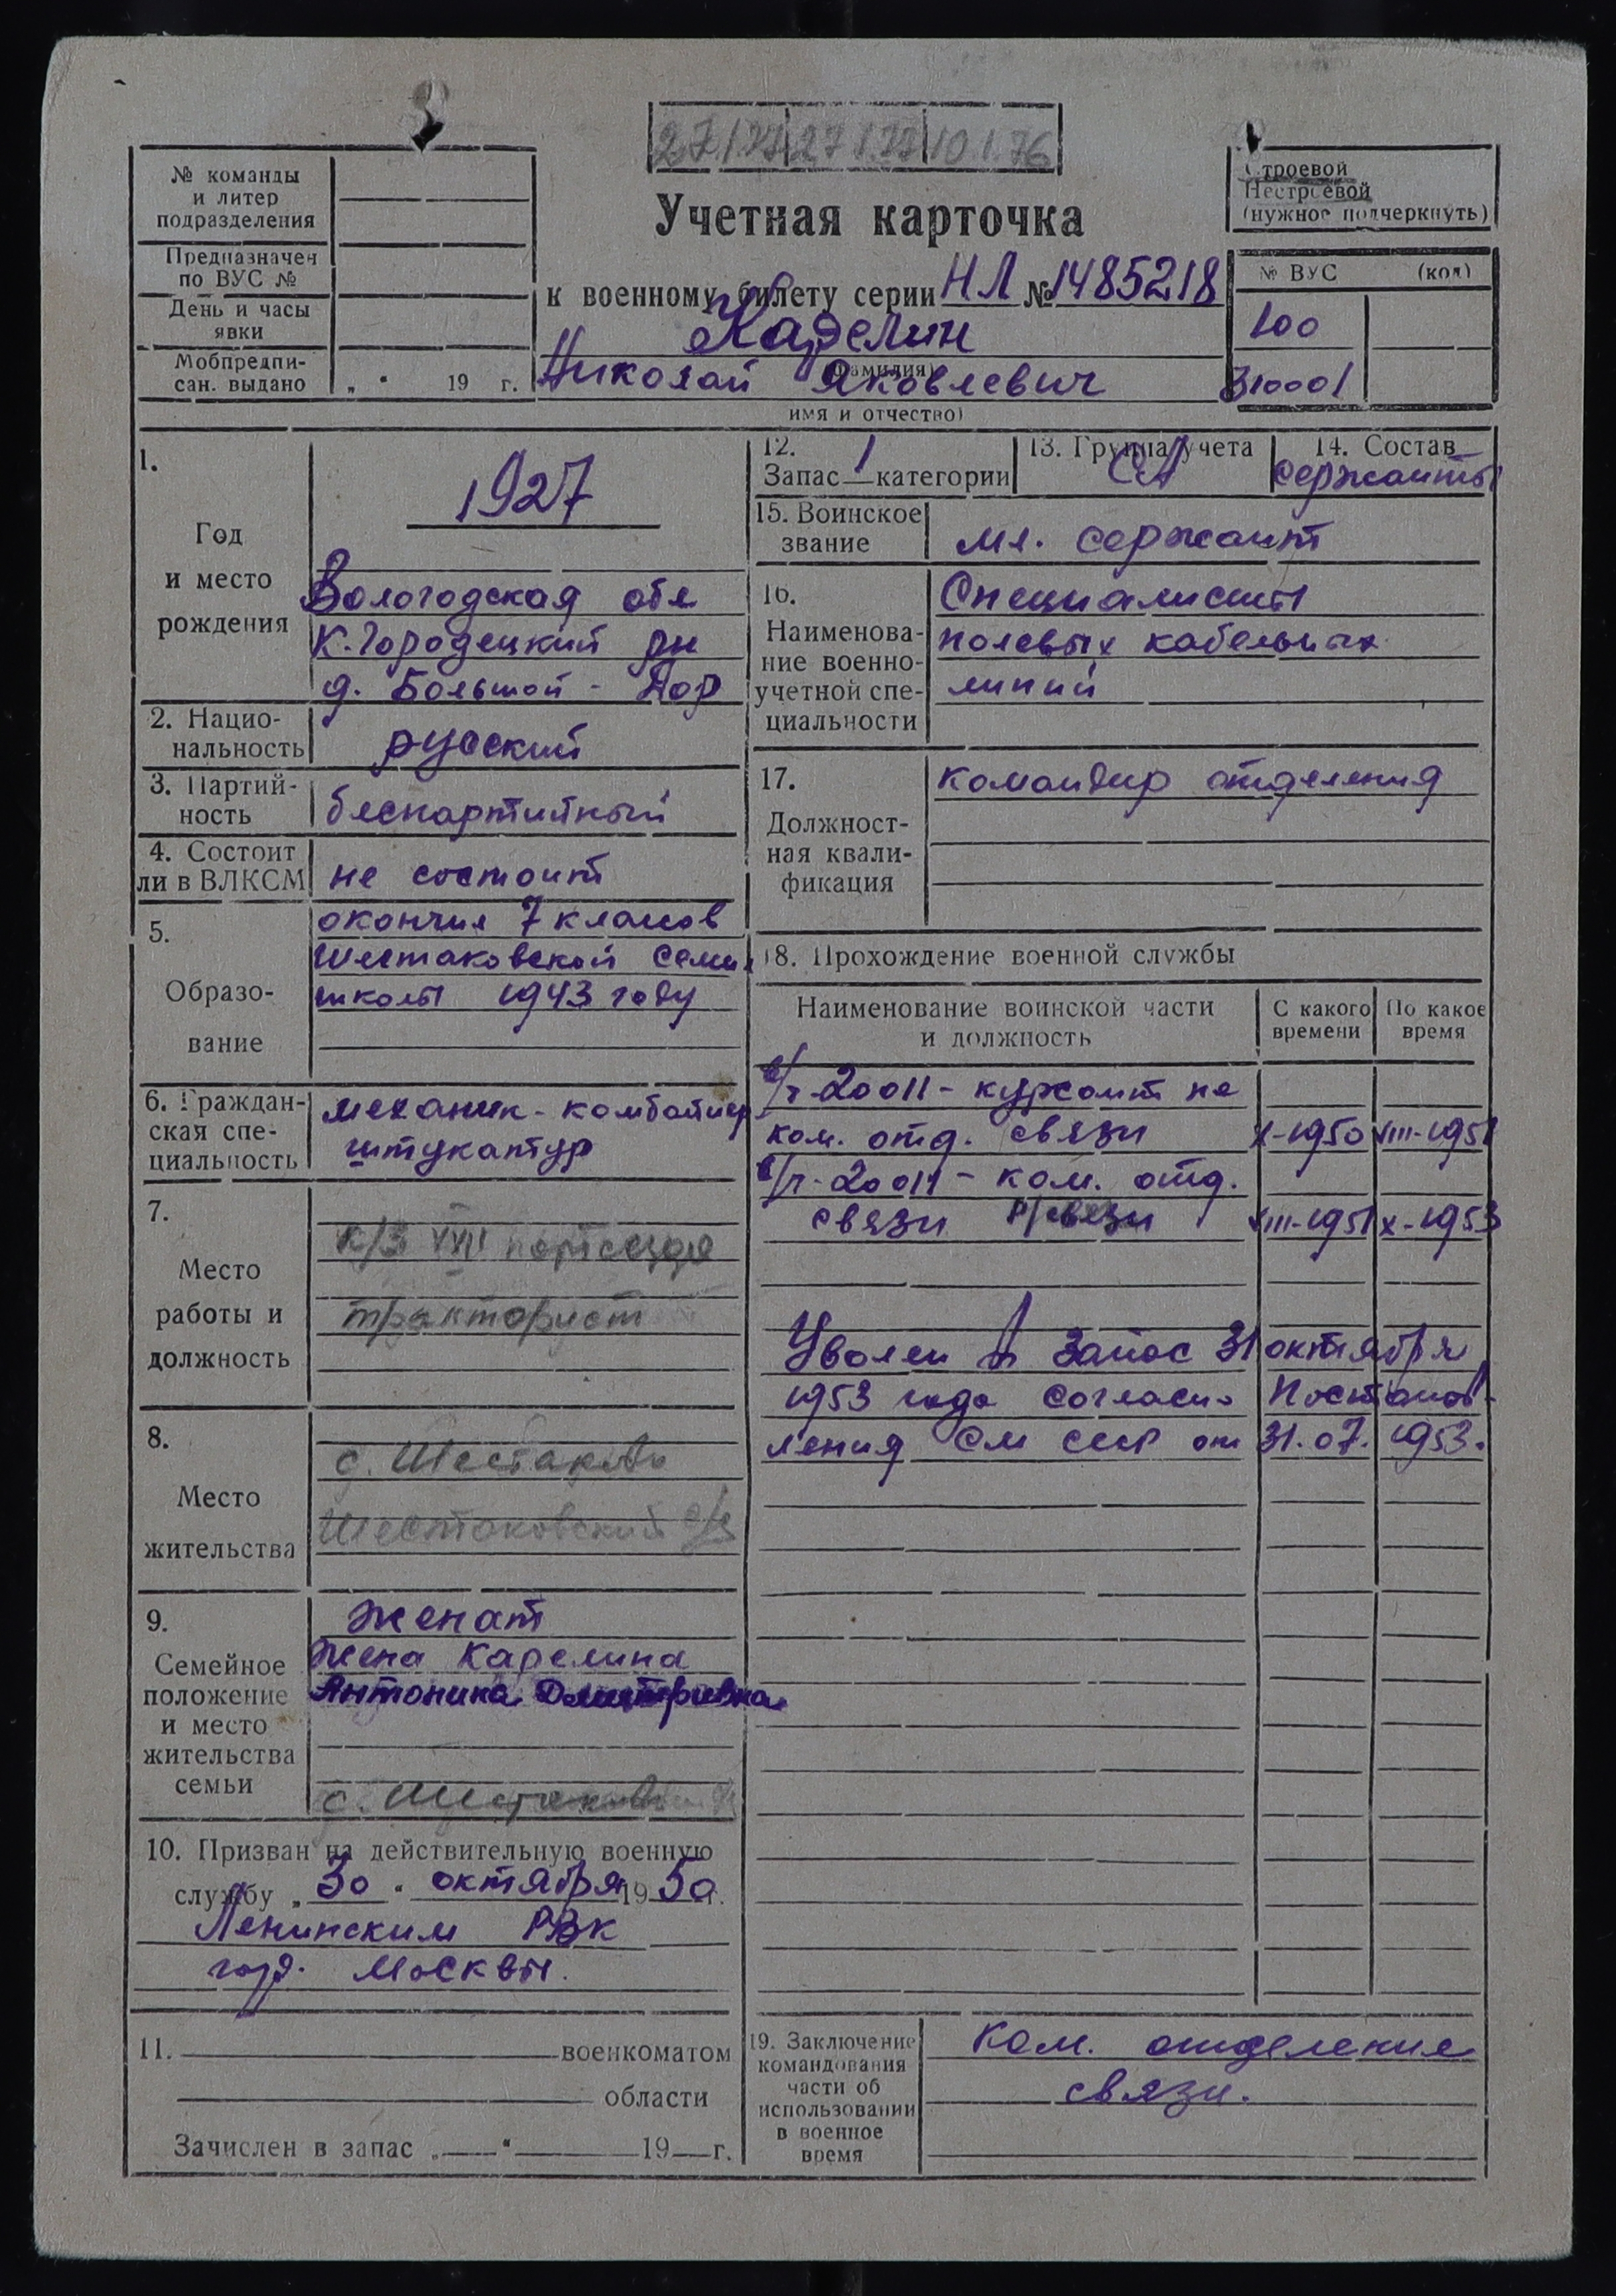 27.I.77 27.I.77 10.1.76
№ команды
и литер
подразделения
Предназначен
по ВУС №
День и часы
явки
Мобпредпи-
сан. выдано „ “ 19 г.
Учетная карточка
к военному билету серии НЛ № 1485218
Карелин
(фамилия)
Николай Яковлевич
имя и отчество)
Строевой
Нестроевой
(нужное подчеркнуть)
№ ВУС (код)
100
310001
1.
Год
и место
рождения
1927
Вологодская обл
К.Городецкий рн
д. Большой - Дор
2. Нацио-
нальность
русский
3. Партий-
ность
беспартийный
4. Состоит
ли в ВЛКСМ
не состоит
5.
Образо-
вание
окончил 7 классов
Шестаковской семил
школы 1943 году
6. Граждан-
ская спе-
циальность
механик-комбайнер
штукатур
7.
Место
работы и
должность
к/з XXII партсезда
тракторист
8.
Место
жительства
с. Шестаково
Шестаковский с/с
9.
Семейное
положение
и место
жительства
семьи
женат
жена Карелина
Антонина Дмитриевна
с. Шестаково
10. Призван на действительную военную
службу „ 30 “ октября 19 50 г.
Ленинским РВК
гор. Москвы.
11. военкоматом
области
Зачислен в запас „ “ 19 г.
12.
Запас 1 категории
13. Группа учета
СА
14. Состав
сержанты
15. Воинское
звание
мл. сержант
16.
Наименова-
ние военно-
учетной спе-
циальности
Специалисты
полевых кабельных
линий
17.
Должност-
ная квали-
фикация
командир отделения
18. Прохождение военной службы
Наименование воинской части
и должность
С какого
времени
По какое
время
в/ч-20011 - курсант на
ком. отд. связи X-1950 VIII-1951
в/ч-20011 - ком. отд.
связи р/связи VIII-1951 X-1953
Уволен в запас 31 октября
1953 года согласно Постанов-
ления СМ СССР от 31.07.1953.
19. Заключение
командования
части об
использовании
в военное
время
Ком. отделения
связи.